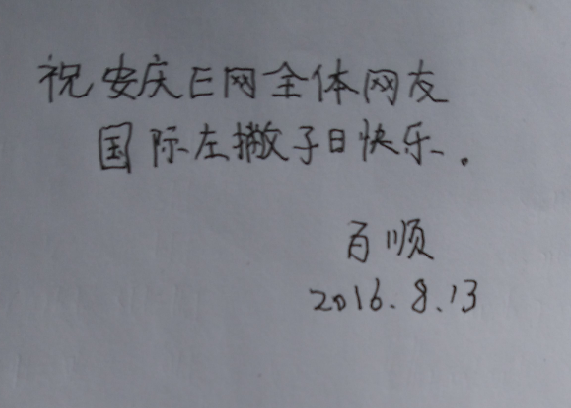 祝安庆E网全体网友
国际左撇子日快乐.
百顺
2016.8.13